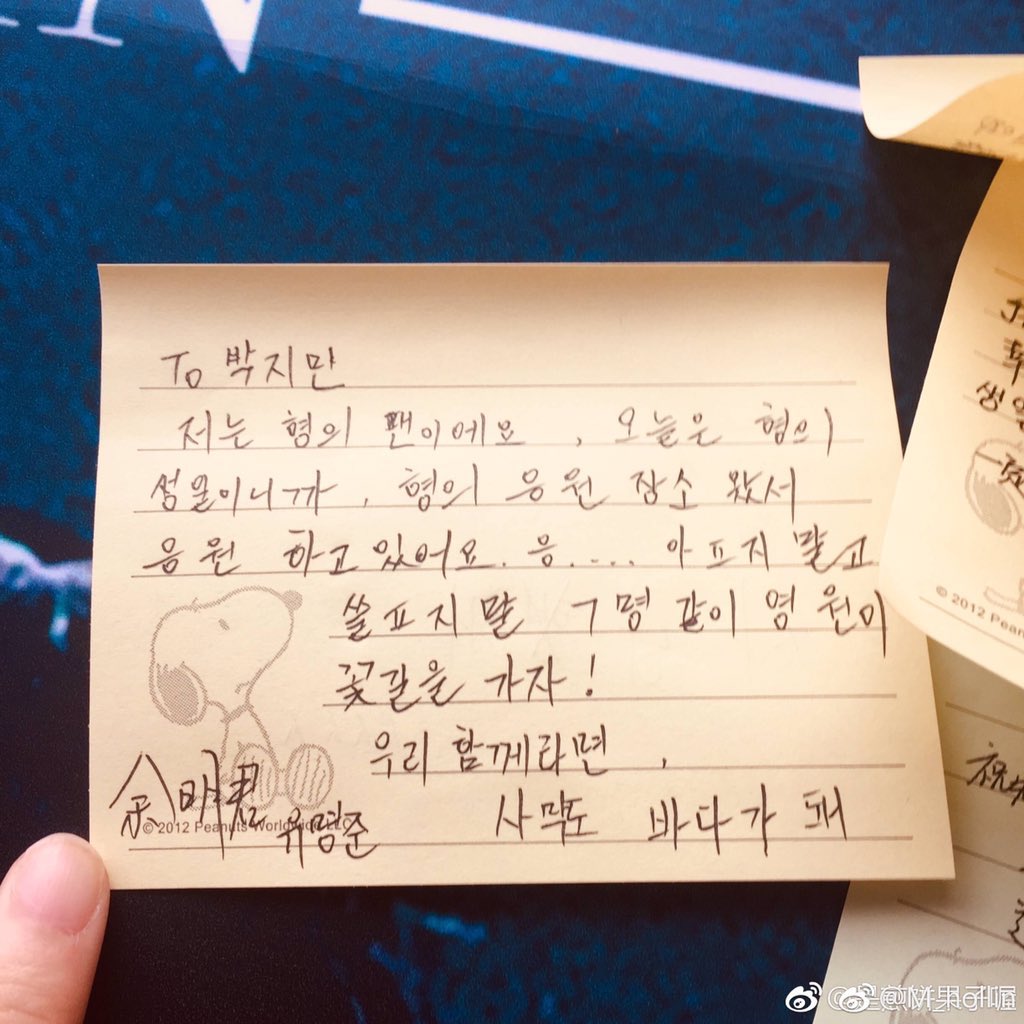 To 박지만
저는 형의 팬이에요 , 오늘은 형의
셩일이니까 , 형의 응원 잠소 왔서
응원 하고 있어요. 응.... 아프지 말고
쓸프지 말 7명 같이 영원이
꽃길을 가자 !
우리 함께라면 ,
사막도 바다가 돼
余明君 유명준
© 2012 Peanuts Worldwide LLC
생일
© 2012 Pean
祝